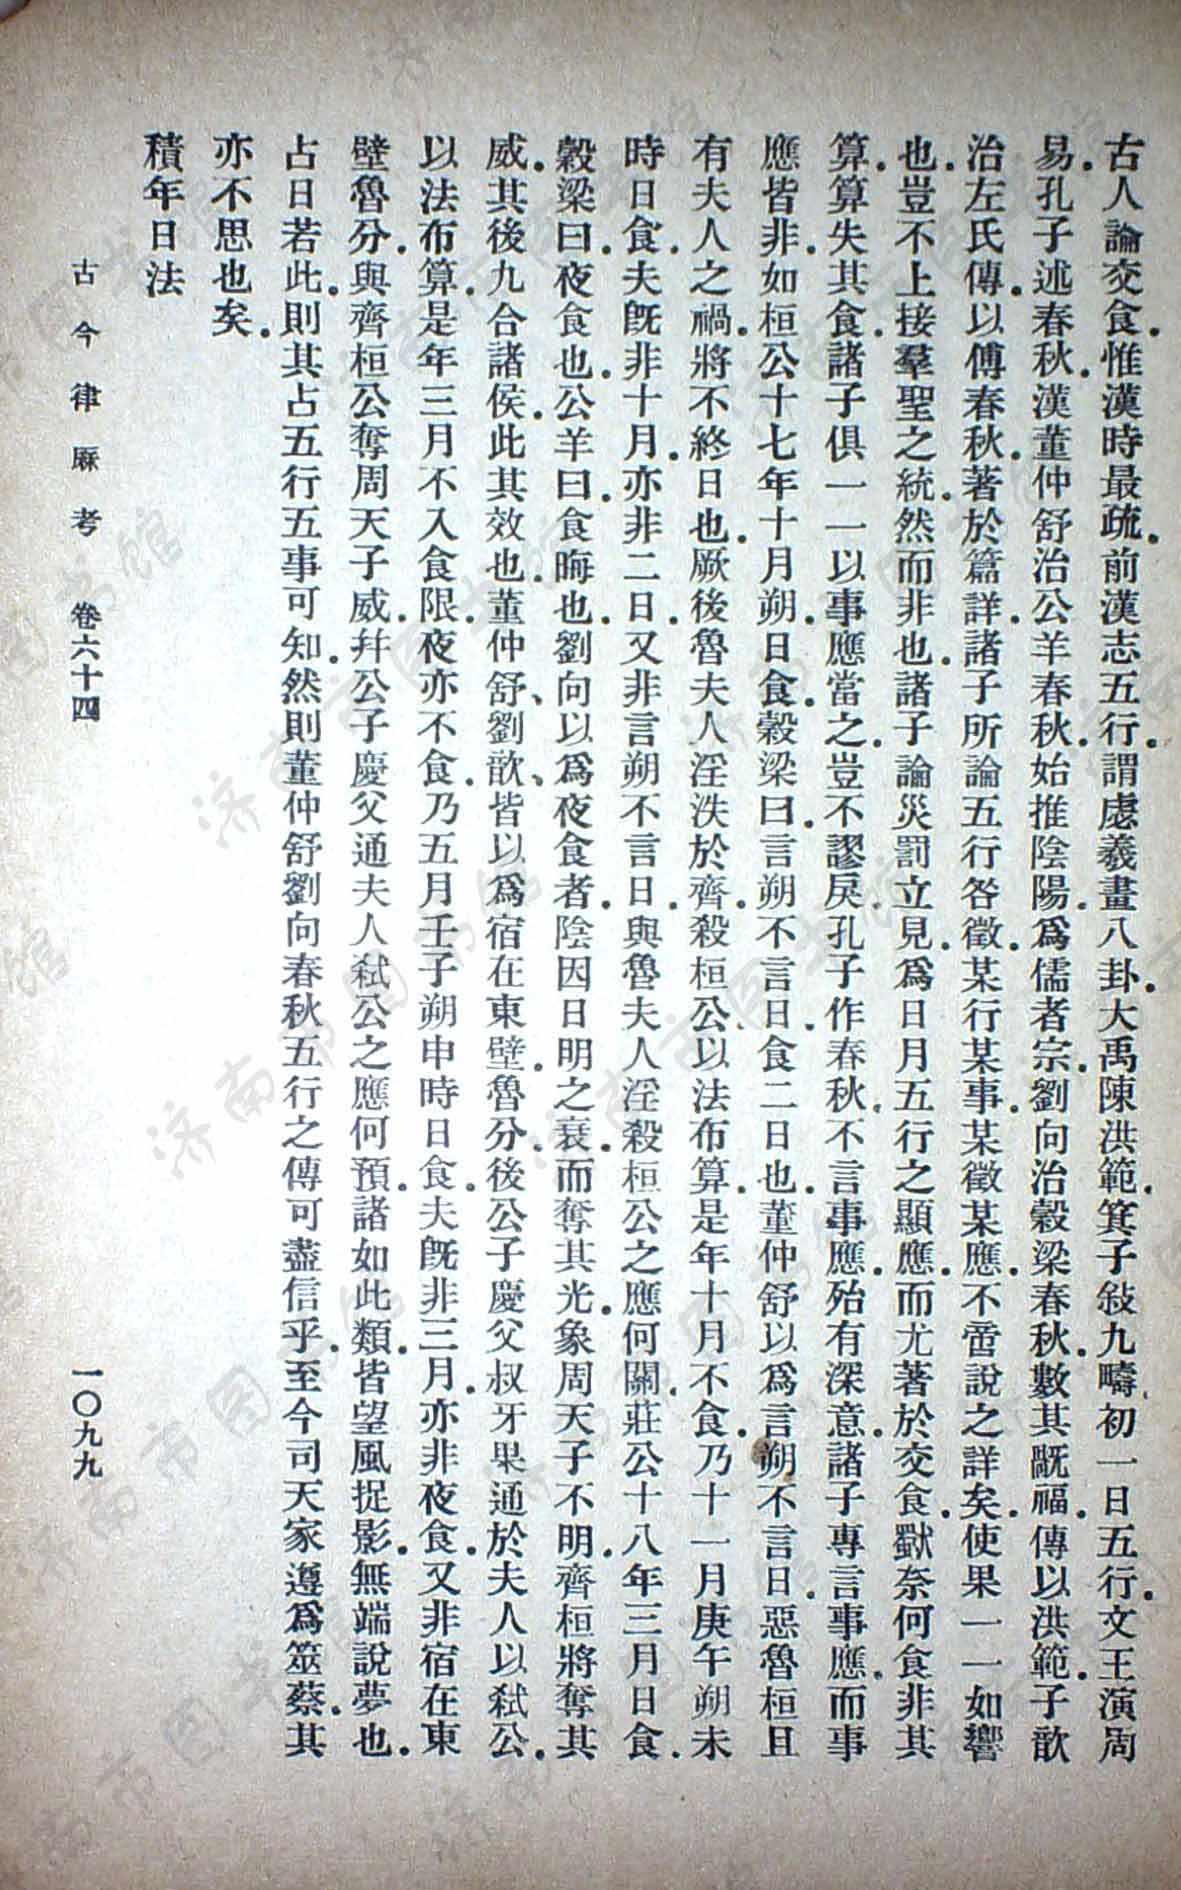 古人論交食。惟漢時最疏。前漢志五行。謂虙羲畫八卦。大禹陳洪範。箕子敍九疇。初一日五行。文王演周
易。孔子述春秋。漢董仲舒治公羊春秋。始推陰陽。爲儒者宗。劉向治穀梁春秋。數其旤福。傳以洪範。子歆
治左氏傳。以傅春秋。著於篇詳。諸子所論五行咎徵。某行某事。某徵某應。不啻說之詳矣。使果一一如響
也。豈不上接羣聖之統。然而非也。諸子論災罰立見。爲日月五行之顯應。而尤著於交食。獸奈何食非其
算。算失其食。諸子俱一一以事應當之。豈不謬戾。孔子作春秋。不言事應。殆有深意。諸子專言事應。而事
應皆非。如桓公十七年十月朔。日食。穀梁曰。言朔不言日。食二日也。董仲舒以爲言朔不言日。惡魯桓且
有夫人之禍。將不終日也。厥後魯夫人淫泆於齊。殺桓公。以法布算。是年十月不食。乃十一月庚午朔未
時日食。夫旣非十月。亦非二日。又非言朔不言日。與魯夫人淫殺桓公之應何關。莊公十八年三月日食。
穀梁曰。夜食也。公羊曰。食晦也。劉向以爲夜食者。陰因日明之衰。而奪其光。象周天子不明。齊桓將奪其
威。其後九合諸侯。此其效也。董仲舒、劉歆、皆以爲宿在東壁。魯分。後公子慶父叔牙果通於夫人以弒公。
以法布算。是年三月不入食限。夜亦不食。乃五月壬子朔申時日食。夫旣非三月。亦非夜食。又非宿在東
壁魯分。與齊桓公奪周天子威。幷公子慶父通夫人弒公之應何預。諸如此類。皆望風捉影。無端說夢也。
占日若此。則其占五行五事可知。然則董仲舒劉向春秋五行之傳可盡信乎。至今司天家遵爲筮蔡。其
亦不思也矣。
積年日法
古今律厤考　卷六十四　一〇九九